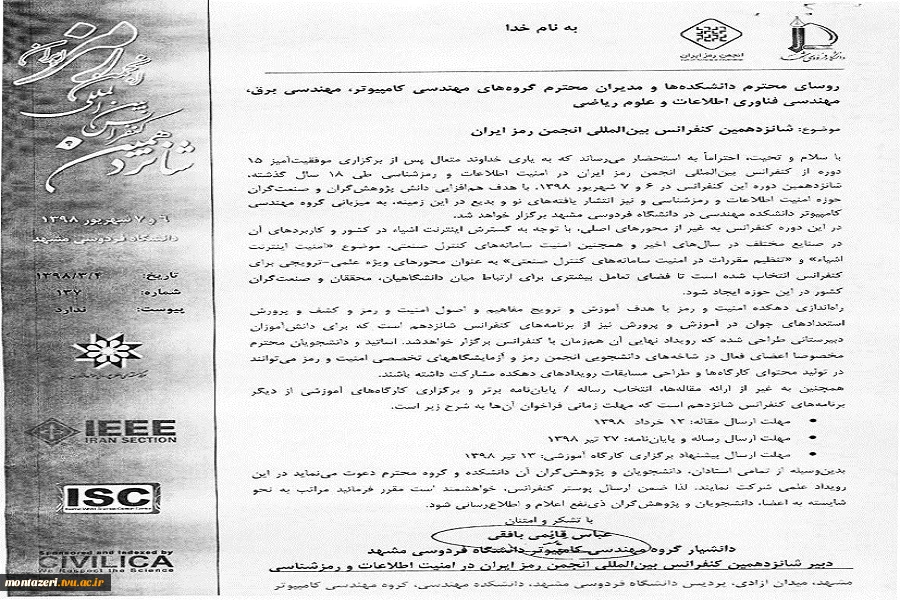 به نام خدا
انجمن رمز ایران
روسای محترم دانشکده‌ها و مدیران محترم گروه‌های مهندسی کامپیوتر، مهندسی برق،
مهندسی فناوری اطلاعات و علوم ریاضی
موضوع: شانزدهمین کنفرانس بین‌المللی انجمن رمز ایران
با سلام و تحیت، احتراماً به استحضار می‌رساند که به یاری خداوند متعال پس از برگزاری موفقیت‌آمیز ۱۵
دوره از کنفرانس بین‌المللی انجمن رمز ایران در امنیت اطلاعات و رمزشناسی طی ۱۸ سال گذشته،
شانزدهمین دوره این کنفرانس در ۶ و ۷ شهریور ۱۳۹۸، با هدف هم‌افزایی دانش پژوهش‌گران و صنعت‌گران
حوزه امنیت اطلاعات و رمزشناسی و نیز انتشار یافته‌های نو و بدیع در این زمینه، به میزبانی گروه مهندسی
کامپیوتر دانشکده مهندسی در دانشگاه فردوسی مشهد برگزار خواهد شد.
در این دوره کنفرانس به غیر از محورهای اصلی، با توجه به گسترش اینترنت اشیاء در کشور و کاربردهای آن
در صنایع مختلف در سال‌های اخیر و همچنین امنیت سامانه‌های کنترل صنعتی، موضوع «امنیت اینترنت
اشیاء» و «تنظیم مقررات در امنیت سامانه‌های کنترل صنعتی» به عنوان محورهای ویژه علمی-ترویجی برای
کنفرانس انتخاب شده است تا فضای تعامل بیشتری برای ارتباط میان دانشگاهیان، محققان و صنعت‌گران
کشور در این حوزه ایجاد شود.
راه‌اندازی دهکده امنیت و رمز با هدف آموزش و ترویج مفاهیم و اصول امنیت و رمز و کشف و پرورش
استعدادهای جوان در آموزش و پرورش نیز از برنامه‌های کنفرانس شانزدهم است که برای دانش‌آموزان
دبیرستانی طراحی شده که رویداد نهایی آن همزمان با کنفرانس برگزار خواهدشد. اساتید و دانشجویان محترم
مخصوصا اعضای فعال در شاخه‌های دانشجویی انجمن رمز و آزمایشگاههای تخصصی امنیت و رمز می‌توانند
در تولید محتوای کارگاه‌ها و طراحی مسابقات رویدادهای دهکده مشارکت داشته باشند.
همچنین به غیر از ارائه مقاله‌ها، انتخاب رساله / پایان‌نامه برتر و برگزاری کارگاه‌های آموزشی از دیگر
برنامه‌های کنفرانس شانزدهم است که مهلت زمانی فراخوان آن‌ها به شرح زیر است.
• مهلت ارسال مقاله: ۱۲ خرداد ۱۳۹۸
• مهلت ارسال رساله و پایان‌نامه: ۲۷ تیر ۱۳۹۸
• مهلت ارسال پیشنهاد برگزاری کارگاه آموزشی: ۱۳ تیر ۱۳۹۸
بدین‌وسیله از تمامی استادان، دانشجویان و پژوهش‌گران آن دانشکده و گروه محترم دعوت می‌نماید در این
رویداد علمی شرکت نمایند. لذا ضمن ارسال پوستر کنفرانس، خواهشمند است مقرر فرمائید مراتب به نحو
شایسته به اعضا، دانشجویان و پژوهش‌گران ذی‌نفع اعلام و اطلاع‌رسانی شود.
با تشکر و امتنان
عباس قائمی بافقی
دانشیار گروه مهندسی کامپیوتر دانشگاه فردوسی مشهد
دبیر شانزدهمین کنفرانس بین‌المللی انجمن رمز ایران در امنیت اطلاعات و رمزشناسی
مشهد، میدان آزادی، پردیس دانشگاه فردوسی مشهد، دانشکده مهندسی، گروه مهندسی کامپیوتر
شانزدهمین
کنفرانس بین المللی
انجمن رمز ایران
۶ و ۷ شهریور ۱۳۹۸
دانشگاه فردوسی مشهد
تاریخ: ۱۳۹۸/۳/۲
شماره: ۱۳۷
پیوست: ندارد
IEEE
IRAN SECTION
ISC
Sponsored and Indexed by
CIVILICA
We Respect the Science
montazeri.tvu.ac.ir